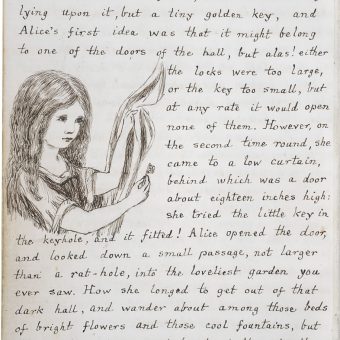 lying upon it, but a tiny golden key, and
Alice's first idea was that it might belong
to one of the doors of the hall, but alas! either
the locks were too large,
or the key too small, but
at any rate it would open
none of them. However, on
the second time round, she
came to a low curtain,
behind which was a door
about eighteen inches high:
she tried the little key in
the keyhole, and it fitted! Alice opened the door,
and looked down a small passage, not larger
than a rat-hole, into the loveliest garden you
ever saw. How she longed to get out of that
dark hall, and wander about among those beds
of bright flowers and those cool fountains, but